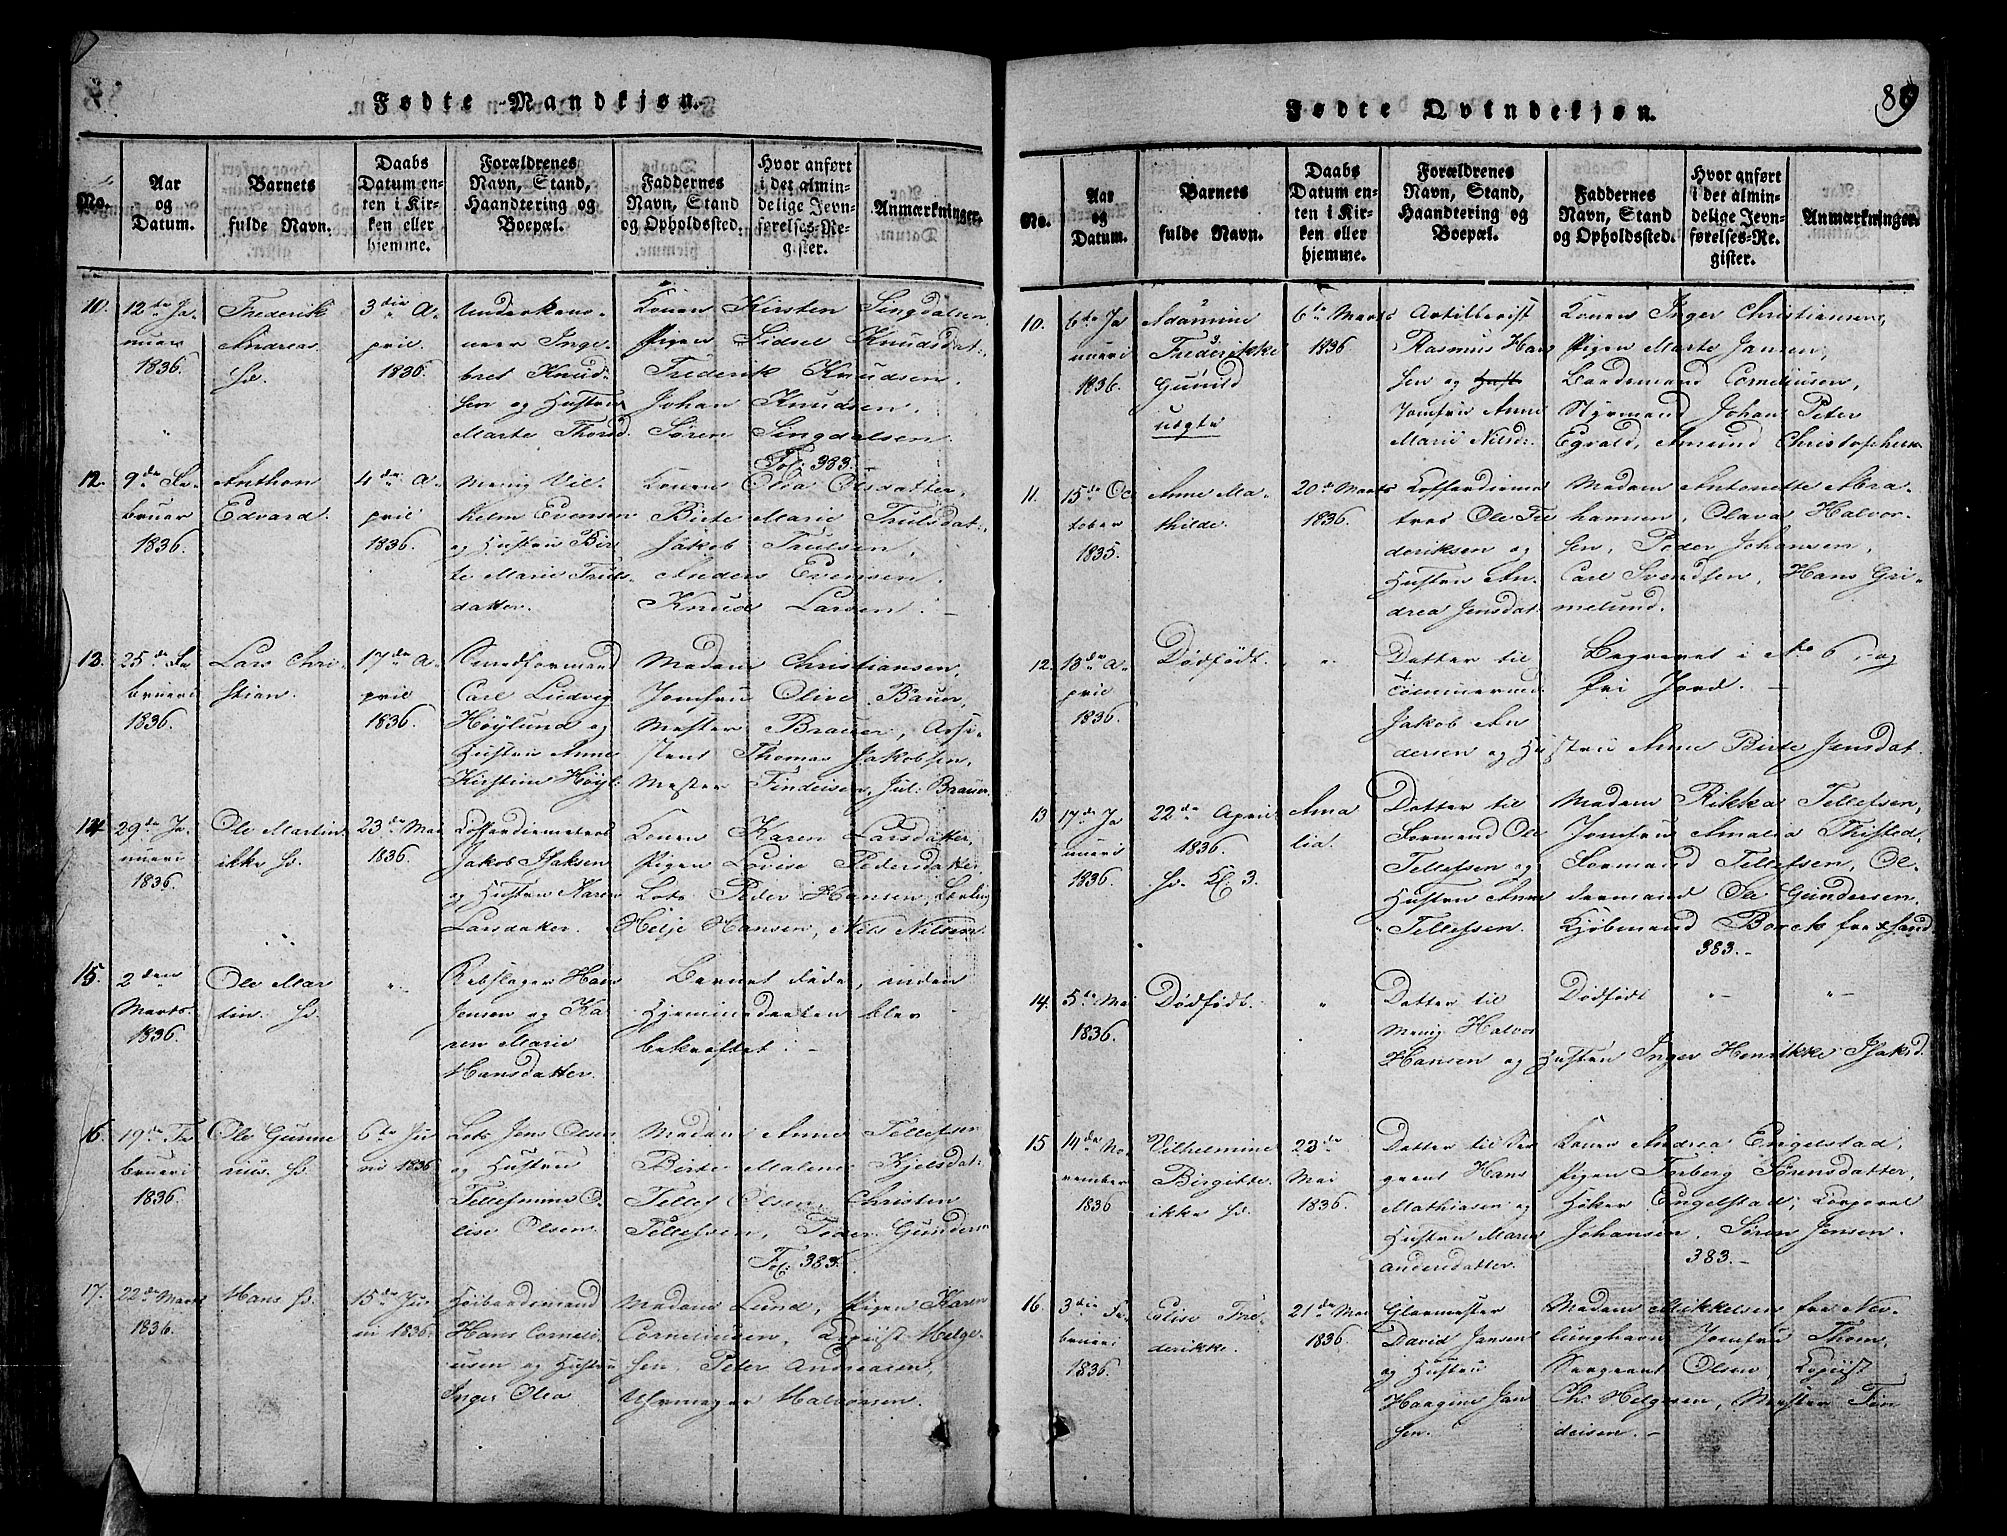 Fødte Mandkjøn.
No.
Aar
og
Datum.
Barnets
fulde Navn.
Daabs
Datum en-
ten i Kir-
ken eller
hjemme.
Forældrenes
Navn, Stand,
Haandtering og
Boepæl.
Faddernes
Navn, Stand
og Opholdssted.
Hvor anført
i det almin-
delige Jevn-
førelses-Re-
gister.
Anmærkninger.
10.
12te Ja-
nuar
1836.
Frederik
Andreas.
3die A-
pril
1836.
Underkano-
neer Inge-
bret Knud-
sen og Hustru
Marte Thorsd.
Konen Kirsten Singdalsen,
Pigen Sidsel Knudsdat-
Frederik Knudsen,
Johan Knudsen,
Søren Singdalsen.
Fol: 383.
12.
9de Fe-
bruar
1836.
Anthon
Edvard.
4de A-
pril
1836.
Menig Vil-
helm Evensen
og Hustru Bir-
te Marie Truls-
datter.
Konen Olea Olsdatter,
Birte Marie Trulsdat-
Jakob Trulsen,
Anders Evensen
Knud Larsen. —
13.
25de Fe-
bruari
1836.
Lars Chri-
stian.
17de A-
pril
1836.
Smedformand
Carl Ludvig
Høylund og
Hustru Anne
Kirstine Høyl:
Madam Christiansen,
Jomfru Olive Bauer,
Mester Brauer, Assi-
stent Thomas Jakobsen,
Mester Findeisen, Jul: Brauer
14
29de Ja-
nuari
1836.
Ole Martin
ikke
23de Mai
1836.
Kofferdiematros
Jakob Isaksen
og Hustru Karen
Larsdatter.
Konen Karen Larsdatter,
Pigen Lovise Pedersdatter,
Lots Peder Hansen, Lærling
Helje Hansen, Niels Nilsen.
15.
2den
Marts
1836.
Ole Mar
tin.
Rebslager Hans
Jensen og Ka
ren Marie
Hansdatter.
Barnet døde, inden
Hjemmedaaben blev
bekræftet. —
16.
19de Fe-
bruari
1836.
Ole Gunne
rius.
6te Ju
ni 1836
Lots Jens Olsen
og Hustru
Tellefmine O-
lise Olsen.
Madam Anne Tellefsen
Birte Malene Kjelsdat-
Tellef Olsen, Christen
Tellefsen, Peder Gunders
Fol: 383.
17.
22de Marts
1836.
Hans
15de Ju-
ni 1836
Høibaadsmand
Hans Corneli-
usen og Hustru
Inger Olea
Madam Lund, Pigen Karen
Corneliusen, Copiist Helge-
sen, Peter Andreasen,
Uhrmager Halvorsen.
Fødte Qvindekjøn.
89
No.
Aar
og
Datum.
Barnets
fulde Navn.
Daabs
Datum en-
ten i Kir-
ken eller
hjemme.
Forældrenes
Navn, Stand,
Haandtering og
Boepæl.
Faddernes
Navn, Stand
og Opholdssted.
Hvor anført
i det almin-
delige Jevn-
førelses-Re-
gister.
Anmærkninger.
10.
6te Ja
nuari
1836.
Adamine
Frederikke
Gunild
uegte
6te Marts
1836
Artillerist
Rasmus Han
sen og
Jomfru Anne
Marie Nilsd.
Konen Inger Christiansen,
Pigen Marte Jansen,
Baadsmand Corneliusen,
Styrmand Johan Peter
Egvald, Amund Christophersen
11.
15de Oc
tober
1835.
Anne Ma-
thilde.
20de Marts
1836.
Kofferdiema
tros Ole Fre
deriksen og
Hustru An-
drea Jensdat-
Madam Antonette Abra-
hamsen, Olava Halvor-
sen, Peder Johansen,
Carl Svendsen, Hans Gri-
melund.
12.
13de A-
pril
1836.
Dødfødt.
Datter til
Tømmermd.
Jakob An
dersen og Hustru Anne Birte Jensdat.
Begravet i No 6, og
fri Jord. —
13
17de Ja
nuari
1836.
22de April
1836.
Kl 3.
Ama
lia.
Datter til
Formand Ole
Tellefsen og
Hustru Anne
Tellefsen.
Madam Rikka Tellefsen,
Jomfru Amalia Thisted,
Formand Tellefsen, Ol-
dermand Ole Gundersen,
Kjøbmand Boeck fra
383. —
14.
5te Mai
1836.
Dødfødt.
Datter til
Menig Halvor
Hansen og Hustru Inger Henrikke Isaksd.
Dødfødt
15
14de No-
vember
1836
Vilhelmine
Birgitte
ikke
23de
Mai
1836.
Datter til Ser
geant Hans
Mathiasen og
Hustru Maren
Andersdatter.
Konen Andrea Engelstad,
Pigen Torberg Sørensdatter,
Høker Engelstad, Corporal
Johansen, Søren Jensen.
383. —
16.
3die Fe-
bruari
1836.
Elise Fre-
derikke.
21de Mai
1836.
Glarmester
David Jansen
og Hustru
Haagine Jan
sen.
Madam Mikkelsen fra Nev-
lunghavn, Jomfru Thom,
Sergeant Olsen, Kopiist
Ch. Helgesen, Mester Fin
deisen. —